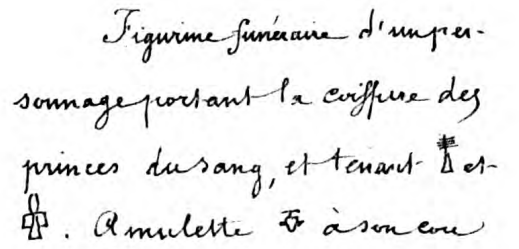 Figurine funéraire d'un per-
sonnage portant la coiffure des
princes du sang, et tenant 𓊽 et
𓎬. Amulette 𓄣 à son cou